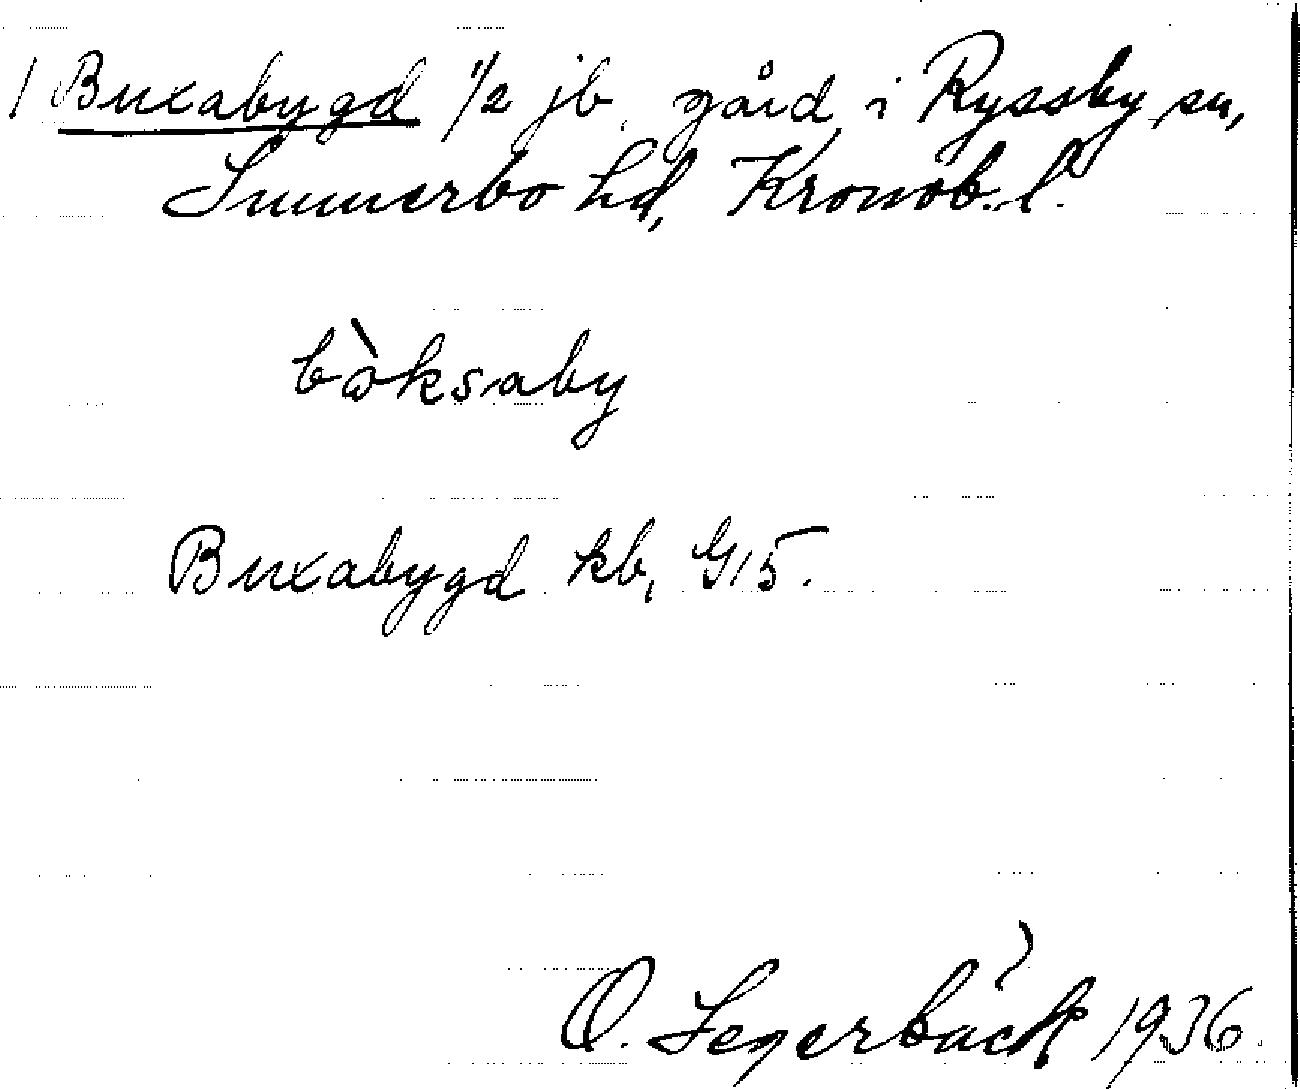 1 Buxabygd 1/2 jb. gård i Ryssby sn,
Sunnerbo hd, Kronob. l.
bòksaby
Buxabygd kb, G15.
O. Segerbäck 1936.